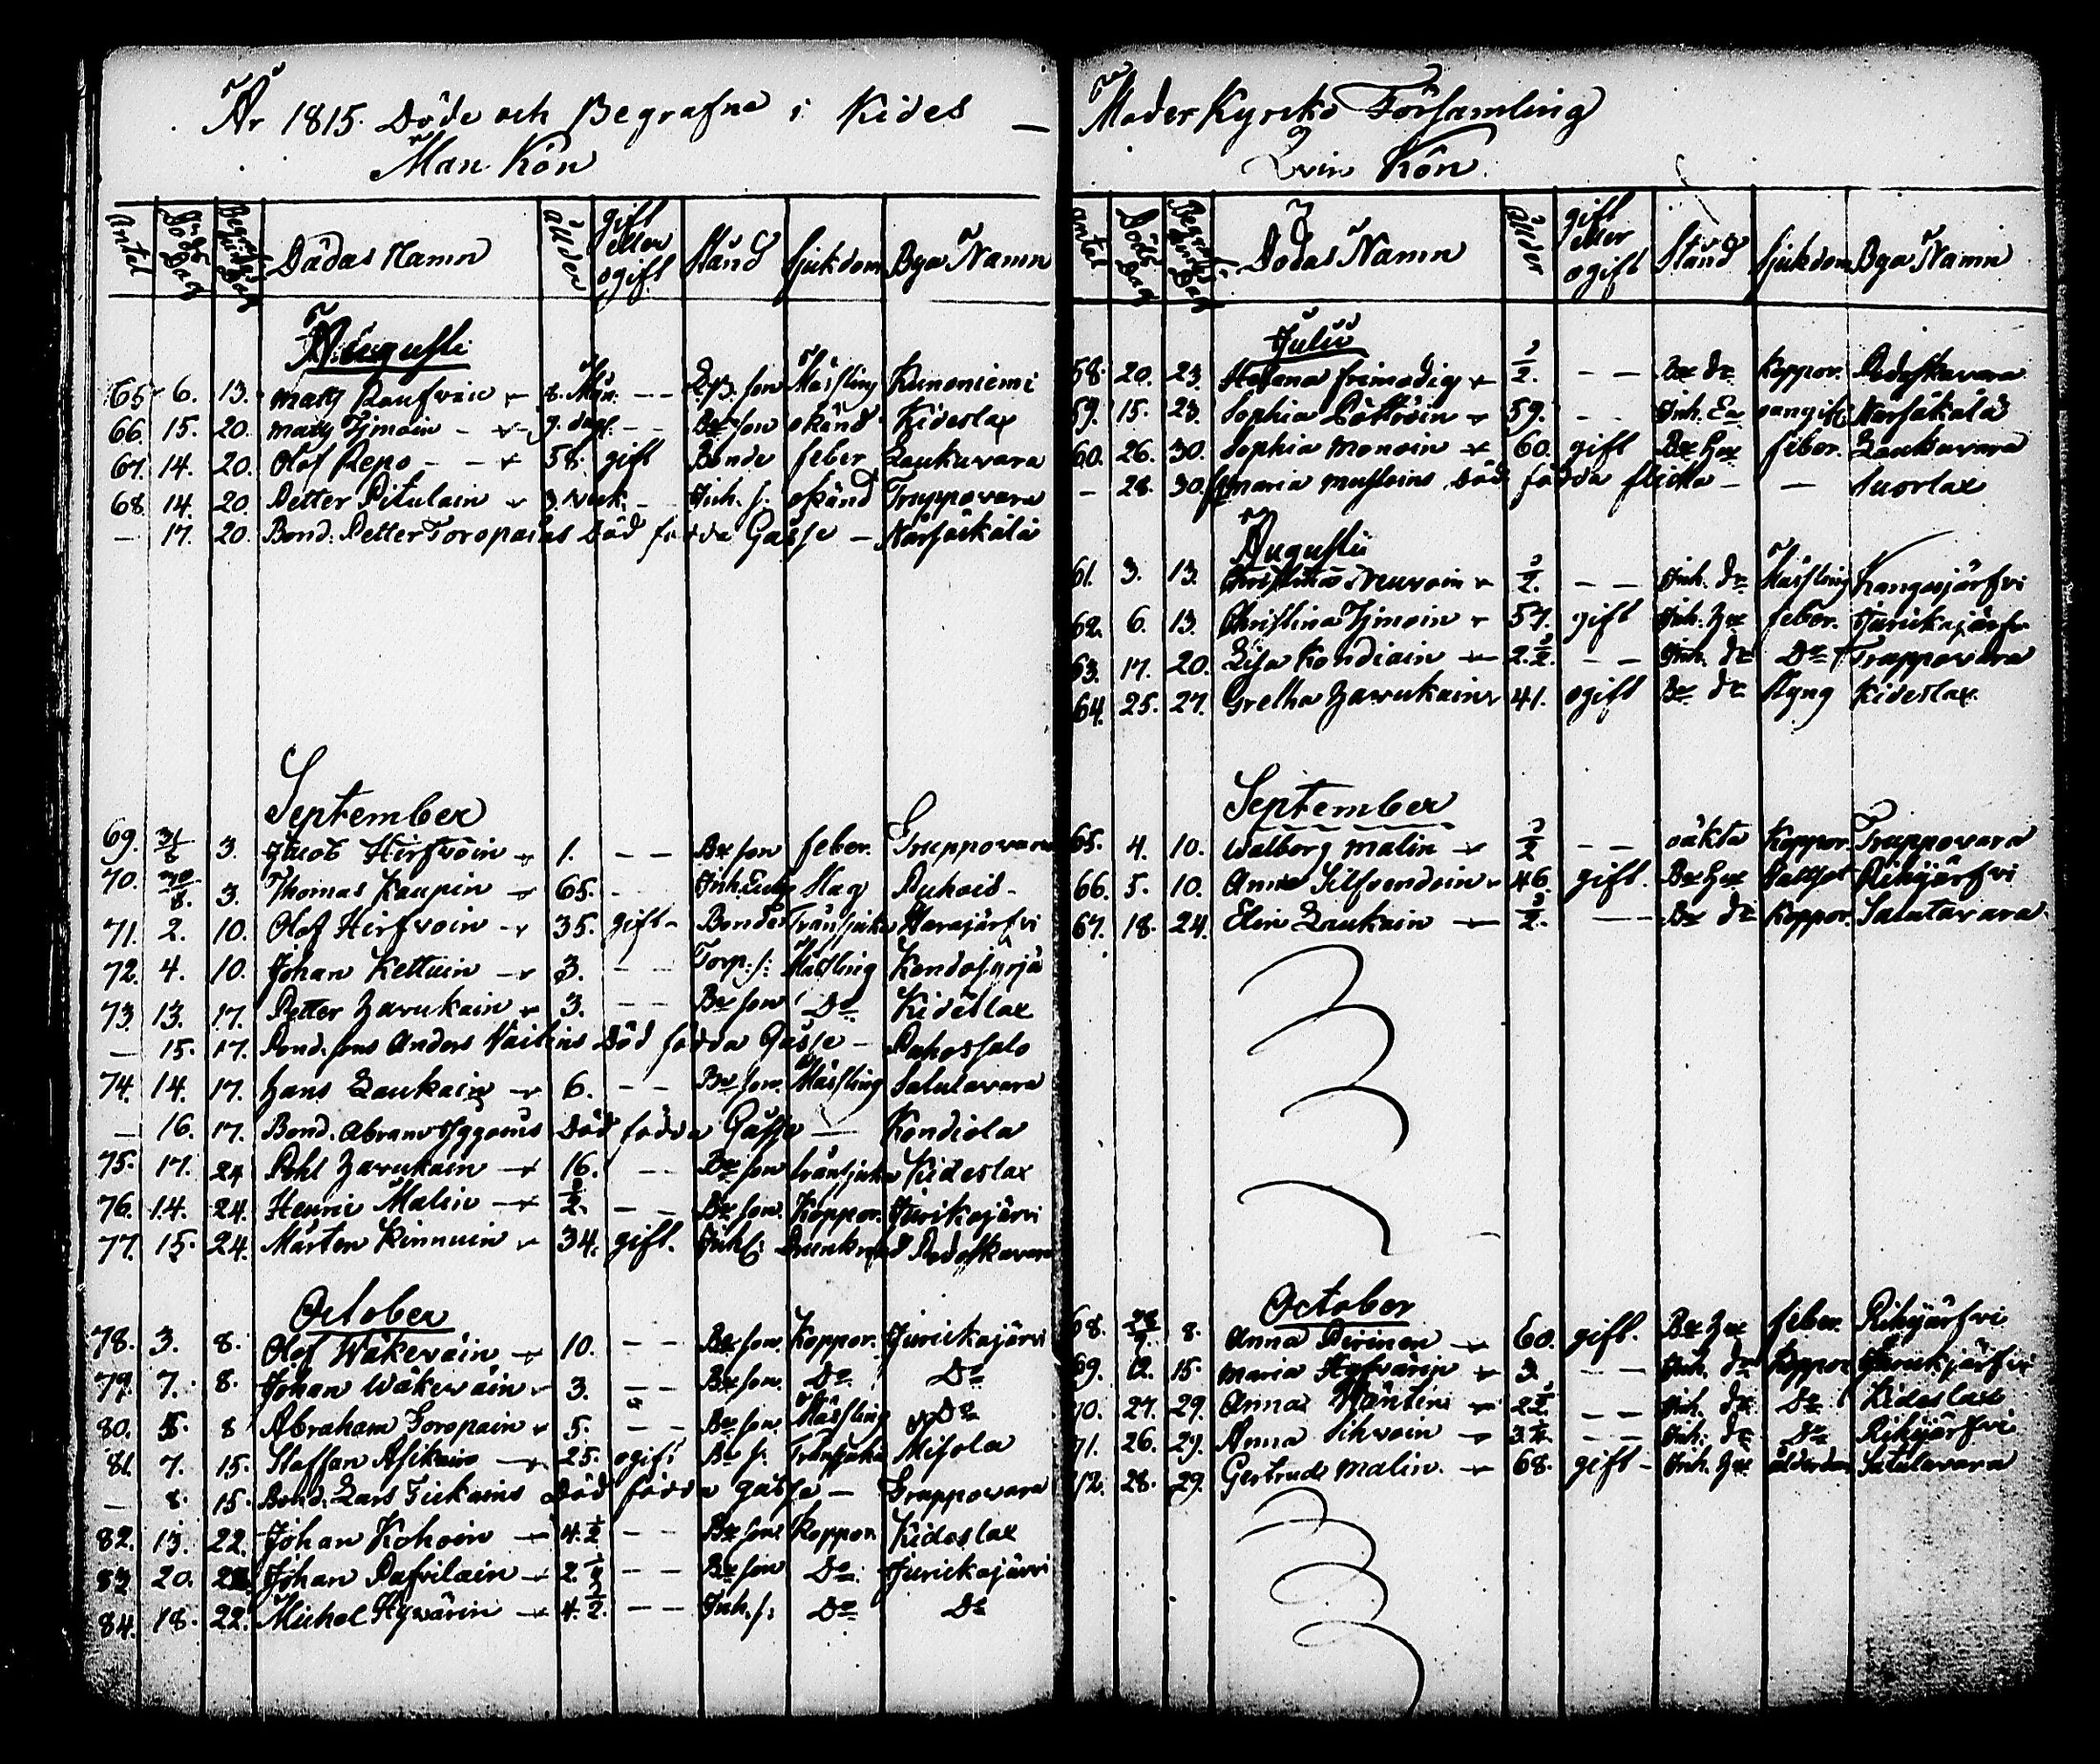 År 1815. Döde och Begrafne i Kides
Man Kön
Antal Döds Dag Begrafnings Dag Dödas Namn ålder gift eller ogift Stånd Sjukdom Bya Namn
Augusti
65. 6. 13. Matts 8. Mån. -- son Mässling Kunoniemi
66. 15. 20. Matts Tjmoin - 9. dag. -- Be son okänd Kideslax
67. 14. 20. Olof Repo -- 58. gift Bonde feber Laukuvara
68 14. 20 Petter Pitulain 3. veck. - Inh. s. okänd Truppovara
— 17. 20. Bond. Petter Toropains död födda Gosse — Närsäkälä
September
69. 31/8 3. Jacob Hirfvoin 1. -- Be son feber. Truppovara
70. 30/8. 3. Thomas Kaupin 65. - Inh. Slag Puhois-
71. 2. 10. Olof Hirfvoin 35. gift- Bonde Trånsjuka Harajärfvi
72. 4. 10. Johan Kettuin 3. -- Torp. s: Mässling
73. 13. 17. Petter Zavukain 3. -- Be son Do Kideslax
— 15. 17. Bond. sons Anders död födda Gosse — Puhossalo
74. 14. 17. Hans Laukain 6. -- Be son. Mässling Salutavara
— 16. 17. Bond. Abram död födda Gosse — Kondiola
75. 17. 24 Pohl Zavukain 16. -- Be son trånsjuka Kideslax
76. 14. 24. Henric Malin 1/2. -- Be son. Koppor. Jurikajärvi
77. 15. 24. Mårten Kinnuin 34. gift. Inh. Drunknad Podoskavara
October
78. 3. 8. Olof Wäkeväin 10. -- Be son. Koppor. Jurickajärvi
79. 7. 8. Johan Wäkeväin 3. -- Be son. Do Do
80. 5. 8 Abraham Toropain 5. -- Be son. Mässling Do
81. 7. 15. Staffan Asikain 25. ogift Be s. Trånsjuka Misola
— 8. 15. Bond. Lars Tickains död födda gosse — Truppovara
82. 13. 22. Johan Kohoin 4.1/2 -- Be son Koppor Kideslax
83 20. Johan Pafvilain 2. -- Be son Do. Jurickajärvi
84. 18. 22. Michel Hyvärin 4.1/2. -- Inh. s: Do Do
Moder Kyrko Församling
Qvin Kön.
Antal Döds Dag Begrafnings Dag Dödas Namn Ålder gift eller ogift Stånd Sjukdom Bya Namn
Julii
58. 20. 23. Helena Frimodig 1/2. -- Be dr Koppor. Podoskavara
59. 15. 23. Sophia 59. -- Inh. Ea Närsäkälä
60. 26. 30. Sophia Monoin 60. gift Be Hu feber. Laukuvara
— 28. 30. Maria Mustoins död födda flicka — — Suorlax
Augusti
61. 3. 13. Christina 1/2. -- Inh. dr Mässling Kangasjärfvi
62. 6. 13. Christina Tjmoin 57. gift Inh. Hu feber. Jurickajärfv
63. 17. 20. Lisa Kondiain 2.1/2. -- Inh. dr Do Truppovara
64. 25. 27. Gretha Zavukain 41. ogift Be dr styng Kideslax
September
65. 4. 10. Walborg Malin 1/2 -- oäkta Koppor. Truppovara
66. 5. 10. Anna Silfvendoin 46. gift. Be Hu Rihijärfvi
67. 18. 24. Elin Laukain 1/2. -- Be dr Koppor. Salutavara
October
68. 28/9. 8. Anna Pirinen 60. gift. Be Hu feber. Rihijärfvi
69. 12. 15. Maria Hyfvärin 3. — Inh. dr Koppor
70. 27. 29. Anna Häntin 2.1/2 -- Inh. dr Do Kideslax
71. 26. 29. Anna Sihvoin -- Inh. dr Do Rihijärfvi
72. 28. 29. Gertrud Malin. 68. gift - Inh. Hu ålderdom Salutavara